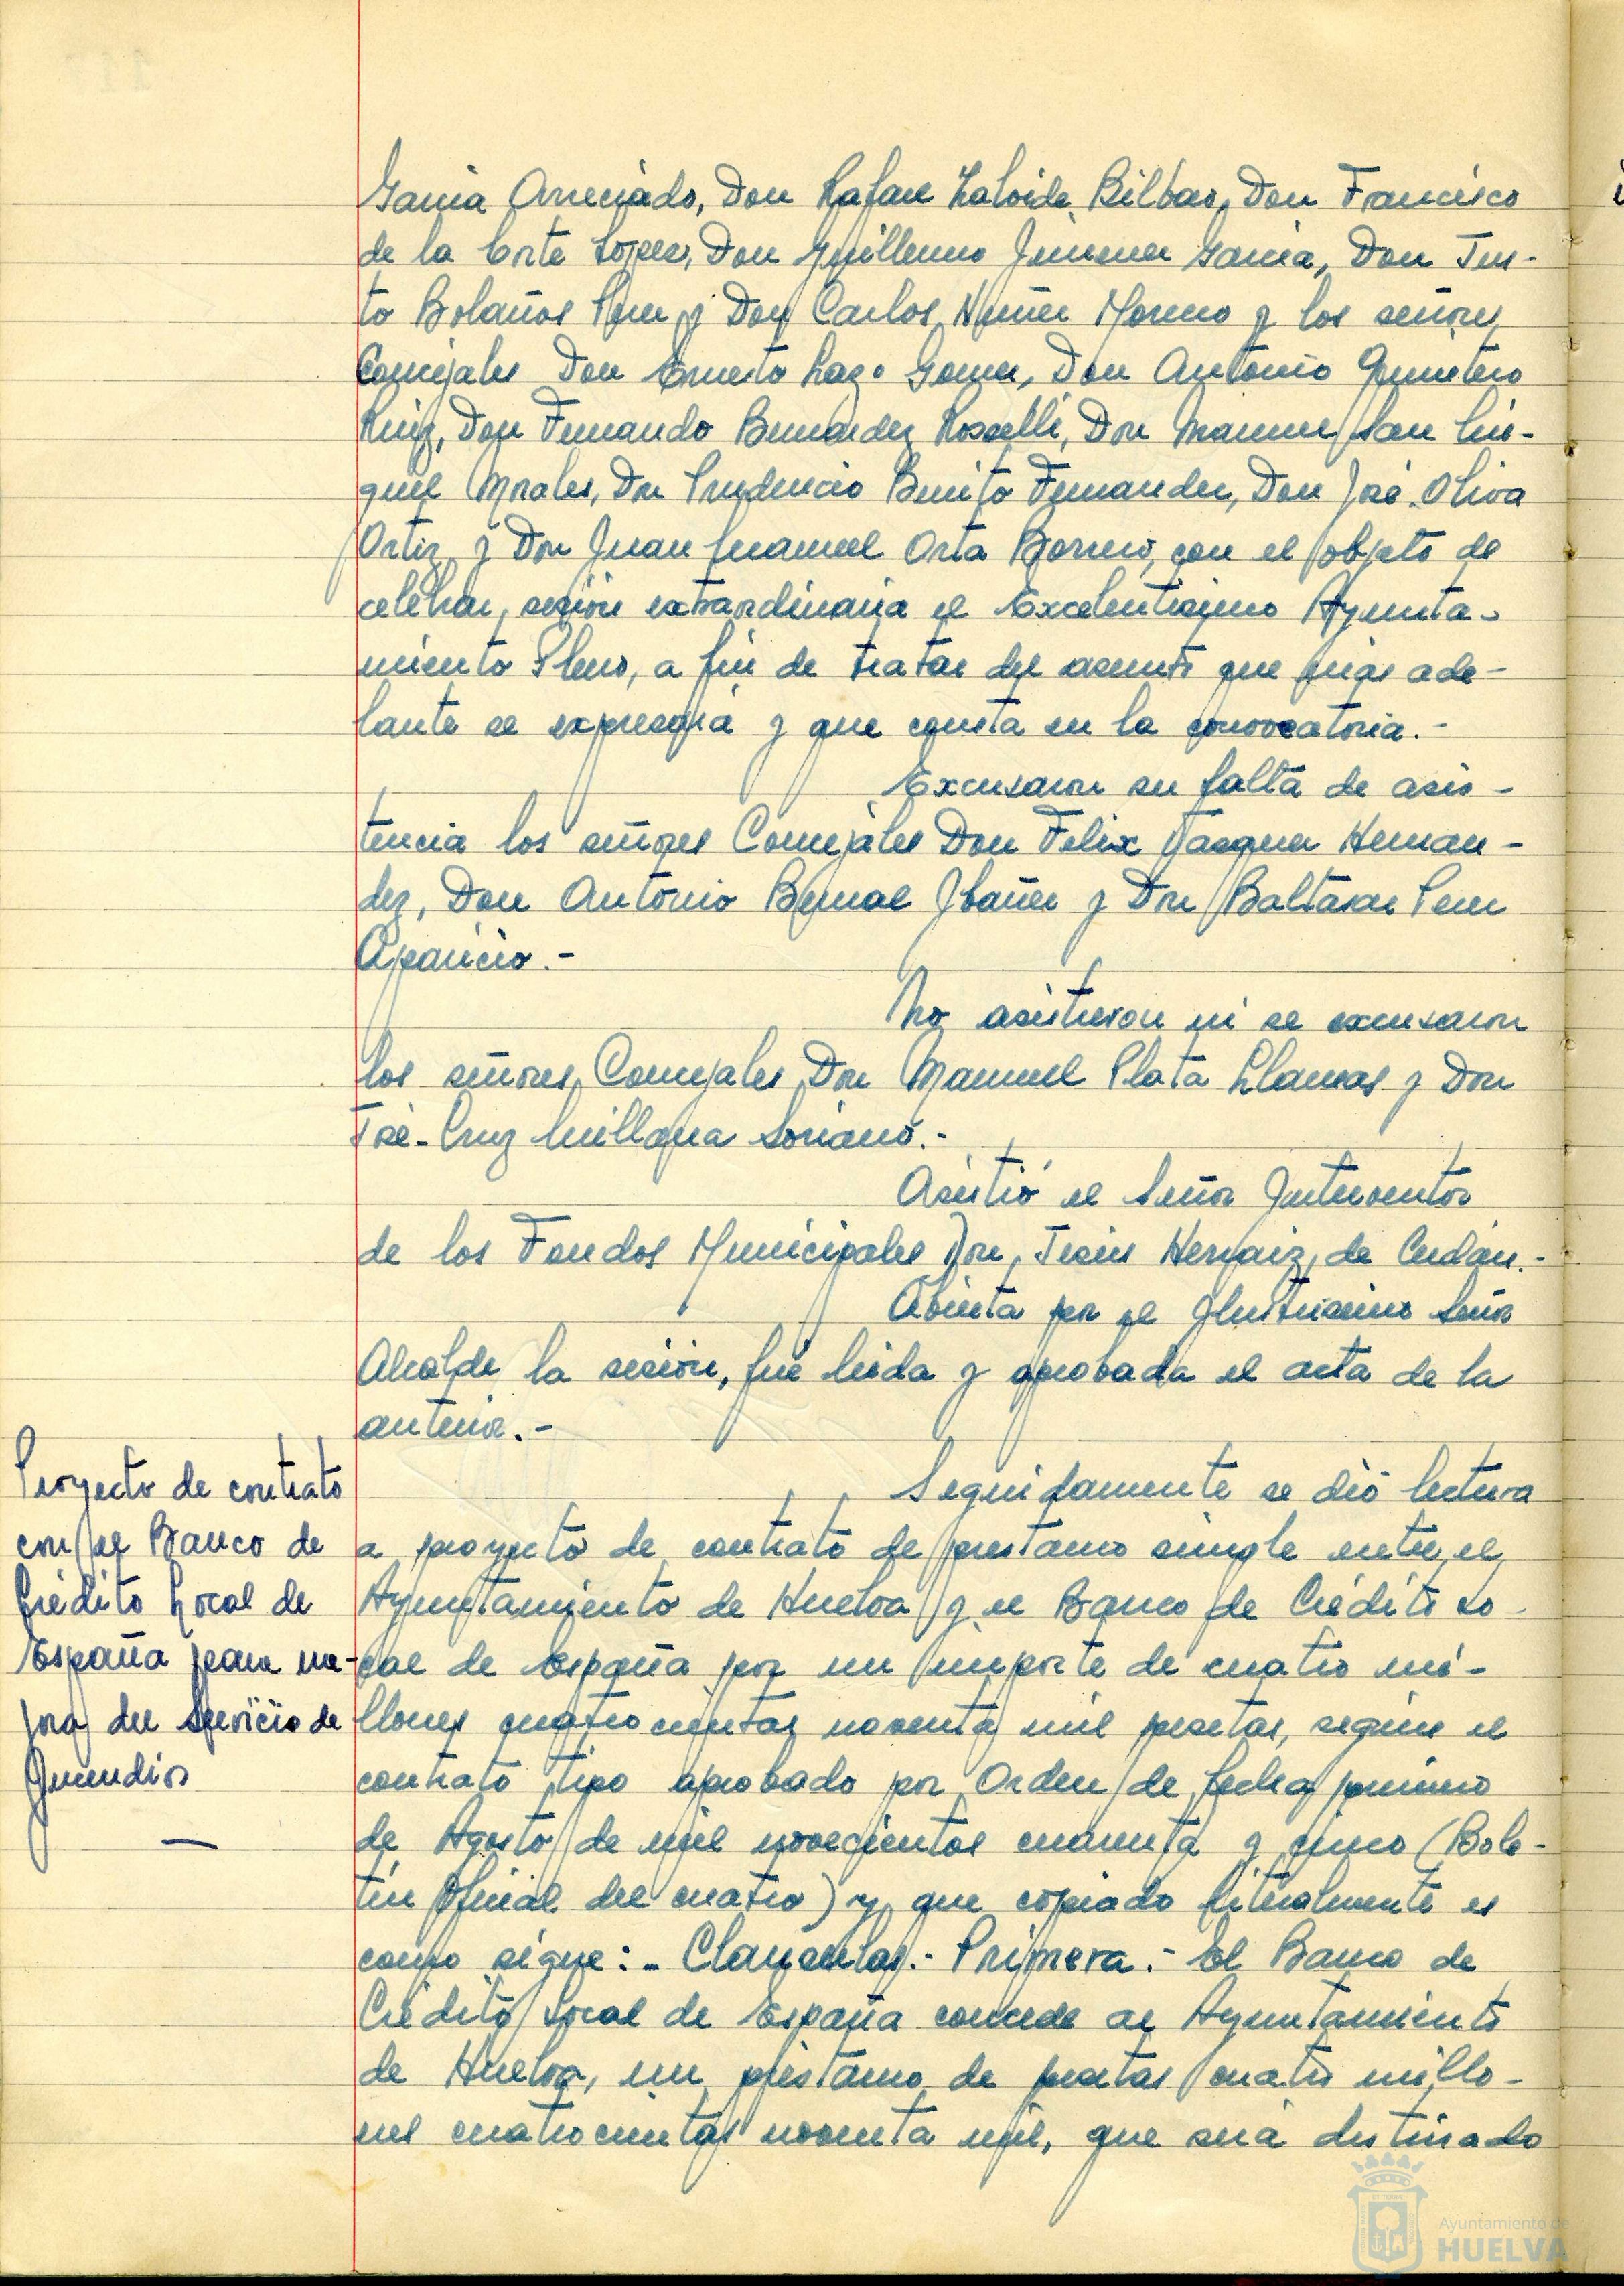 Garcia Arreciado, Don Rafael Zaloide Bilbao, Don Francisco
de la Corte Lopez, Don Guillermo Jimenez Garcia, Don Jus-
to Bolaños Perez y Don Carlos Nuñez Moreno y los señores
Concejales Don Ernesto Lazo Gomez, Don Antonio Quintero
Ruiz, Don Fernando Bernardez Rosselli, Don Manuel San Mi-
guel Morales, Don Prudencio Benito Fernandez, Don José Oliva
Ortiz y Don Juan Manuel Orta Borrero, con el objeto de
celebrar sesión extraordinaria el Excelentisimo Ayunta-
miento Pleno, a fin de tratar del asunto que más ade-
lante se expresará y que consta en la convocatoria.-
Excusaron su falta de asis-
tencia los señores Concejales Don Felix Vazquez Hernan-
dez, Don Antonio Bernal Ibañez y Don Baltasar Perez
Aparicio.-
No asistieron ni se excusaron
los señores Concejales Don Manuel Plata Llamas y Don
José-Cruz Millana Soriano.-
Asistió el Señor Interventor
de los Fondos Municipales Don Jesús Hernaiz de
Abierta por el Ilustrisimo Señor
Alcalde la sesión, fué leida y aprobada el acta de la
anterior.-
Proyecto de contrato
con el Banco de
Crédito Local de
España para me-
jora del Servicio de
Incendios
Seguidamente se dió lectura
a proyecto de contrato de prestamo simple entre el
Ayuntamiento de Huelva y el Banco de Crédito Lo-
cal de España por un importe de cuatro mi-
llones cuatrocientas noventa mil pesetas, según el
contrato tipo aprobado por Orden de fecha primero
de Agosto de mil novecientos cuarenta y cinco (Bole-
tin Oficial del cuatro) y que copiado literalmente es
como sigue:- Clausulas.- Primera.- El Banco de
Crédito Local de España concede al Ayuntamiento
de Huelva, un préstamo de pesetas cuatro millo-
nes cuatrocientas noventa mil, que será destinado
Ayuntamiento de
HUELVA